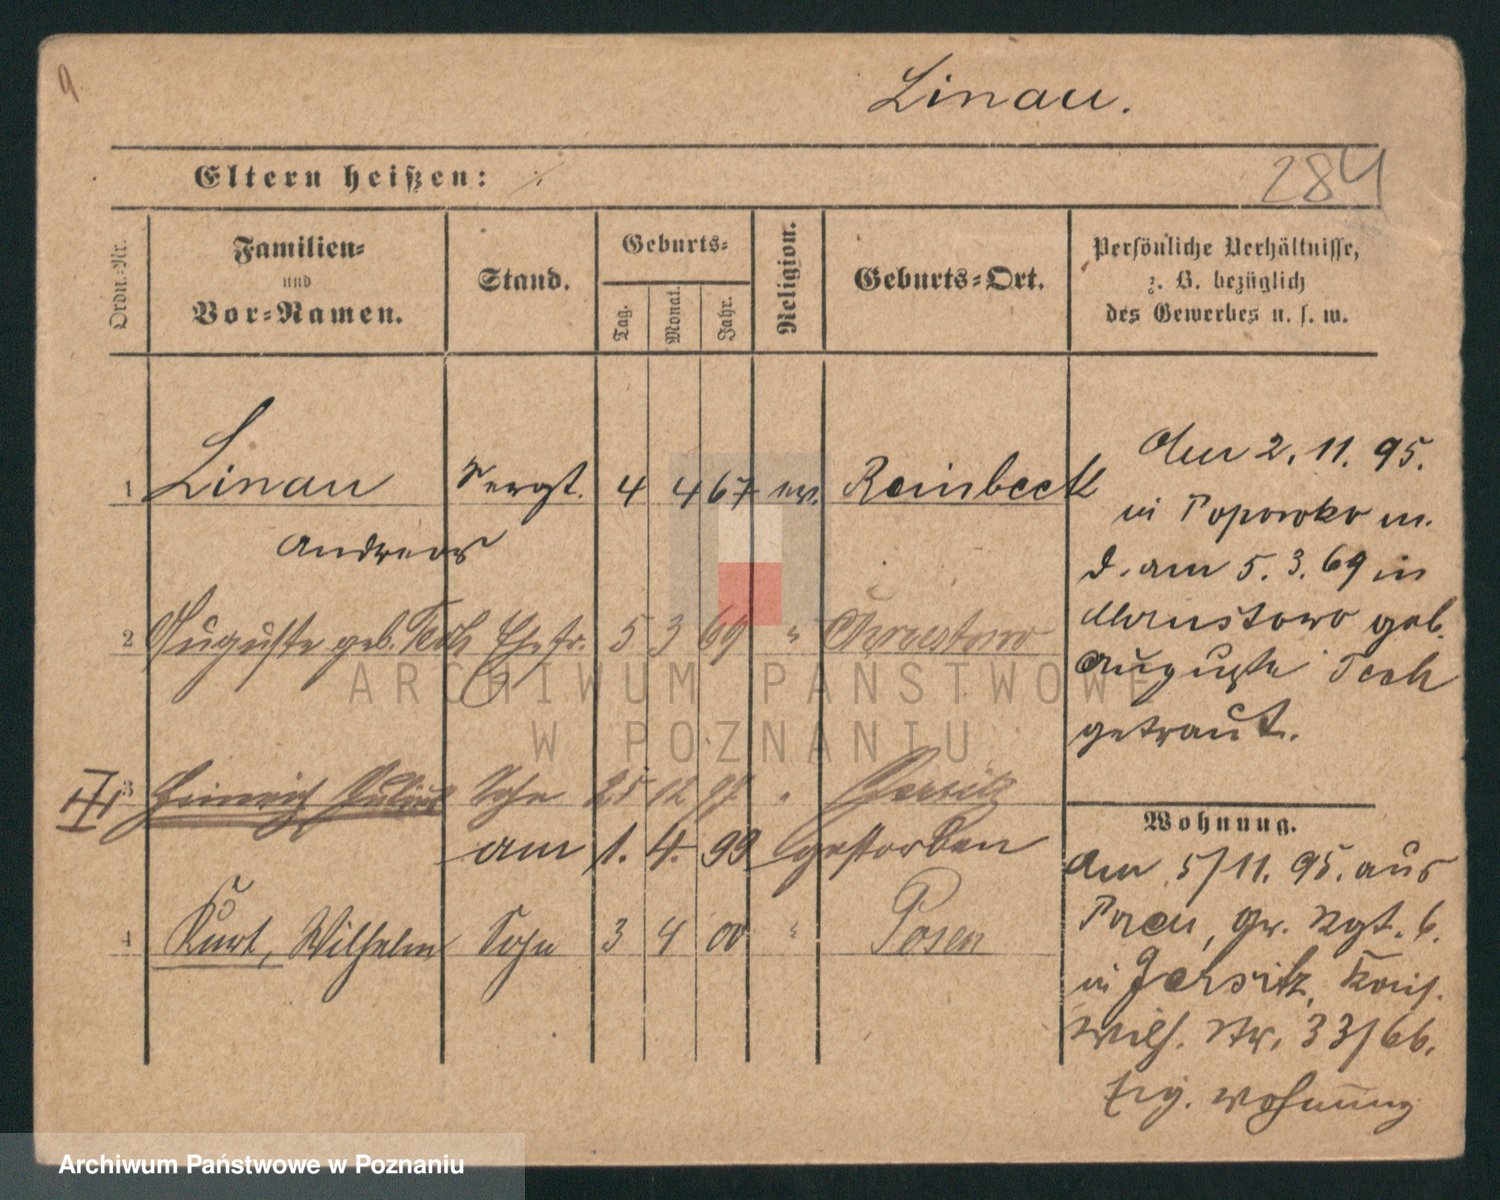 9
Linau.
Eltern heißen:
284
Ordn.-Nr.
Familien-
und
Vor-Namen.
Stand.
Geburts-
Tag.
Monat.
Jahr.
Religion.
Geburts-Ort.
Persönliche Verhältnisse,
z. B. bezüglich
des Gewerbes u. s. w.
1 Linau Sergt. 4 4 67 ev. Reinbeck
Andreas
2 Auguste geb. Tech Ehefr. 5 3 69 "
3 Heinrich Julius Sohn 25 12 97 " Jersitz
am 1. 4. 99 gestorben
4 Kurt, Wilhelm Sohn 3 4 00 " Posen
Den 2. 11. 95.
in Popowko m.
d. am 5. 3. 69 in
geb.
Auguste Tech
getraut.
Wohnung.
Am 5/11. 95. aus
Posen, Gr. Rgt. 6.
in Jersitz,
Wilh. Str. 33/66.
Wohnung
ARCHIWUM PAŃSTWOWE
W POZNANIU
Archiwum Państwowe w Poznaniu